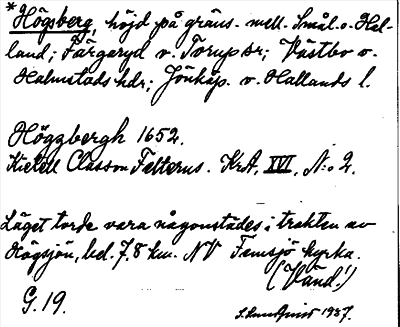 * Högsberg, höjd på gräns. mell. Smål. o. Hal-
land; Färgaryd o. Torup sr; Västbo o.
Halmstads hdr; Jönköp. o. Hallands l.
Högzbergh 1652.
Kietell Classon Felterus. KrA, XVI, N:o 2.
Läget torde vara någonstädes i trakten av
Högsjön, bel. 7,8 km. NV Femsjö kyrka.
(Vänd!)
G. 19.
S. Lundquist 1937.